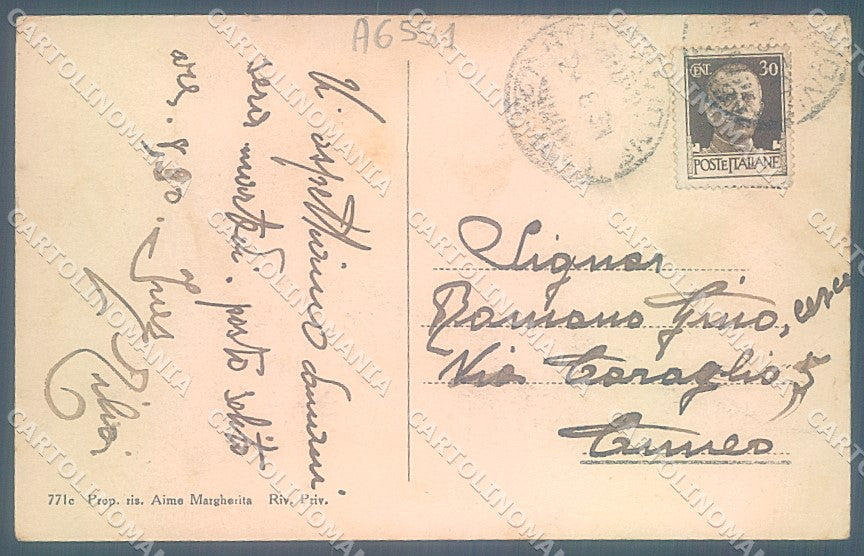 A6551
Vi aspettiamo domani
sera martedì. posto solito
ore.
Ines
Silvia
CENT. 30
POSTE ITALIANE
Signor
Romano Gino,
Via Caraglio, 5
Cuneo
771c Prop. ris. Aimo Margherita Riv. Priv.
CARTOLINOMANIA